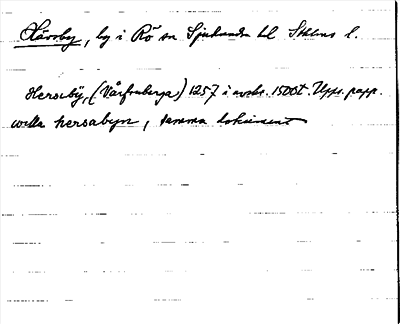 Härsby, by i Rö sn Sjuhundra hd Sthlms l.
Hersiby, (Vårfruberga) 1257 i avskr. 150t. Upps. papp.
willa hersabyn, samma dokument